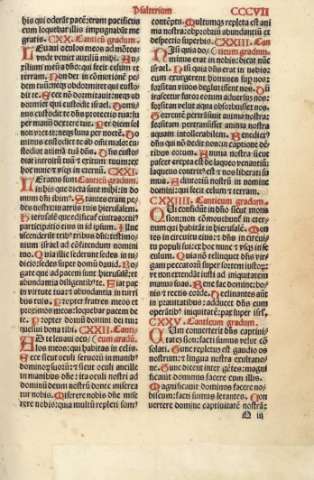 Psalterium CCCVII
his qui oderāt pacē: eram pacificus
cum loquebar illis impugnabāt me
gratis. CXX. Canticū graduum.
LEuaui oculos meos ad mōtes:
vnde veniet auxiliū mihi. Au
xilium meū a dño: qui fecit celum et
terram. Non det in cōmotionē pe
dem tuū: neqʒ dormitet qui custo
dit te. Ecce nō dormitabit: neqʒ
dormiet qui custodit israel. Domi
nus custodit te dominus protectio tua: su
per manū dexterā tuā. Per diem sol
non vret te: neqʒ luna per noctē. Do
minus custodit te ab omni malo: cu
stodiat animā tuā dñs. Dominus custo
diat introitū tuū et exitum tuum: ex
hoc nunc et vsqʒ in seculū. CXXI.
LEtatus sum Canticū graduum.
in his que dicta sunt mihi: in do
mum dñi ibimus. Stantes erant pe
des nostri: in atrijs tuis hierusalem.
Hierusalē que edificat̄ vt ciuitas: cuius
participatio eius in id ipsum. Illuc
enim ascenderūt tribus tribus dñi: testimo
nium israel ad cōfitendum nomini
dñi. Quia illic sederunt sedes in iu
dicio: sedes super domū dauid. Ro
gate que ad pacem sunt hierusalē: et
abundantia diligentibus te. Fiat pax
in virtute tua: et abundantia in turri
bus tuis. Propter fratres meos et
proximos meos: loquebar pacem de
te. Propter domū domini dei nr̄i:
quesiui bona tibi. CXXII. Canti
AD te leuaui ocu / cum gradū.
los meos: qui habitas in celis.
Ecce sicut oculi seruorū: in manibus
dominorū suorū: et sicut oculi ancille
in manibus dñe sue: ita oculi nostri ad
dominū deum nostrū donec miserea
tur nobis. Miserere nostri dñe mise
rere nostri: quia multū repleti sumus
despectione. Quia multum repleta est ani
ma nostra: obprobriū abundantiū et
despectio superbis. CXXIII. Can
NIsi quia do / ticum graduum.
minus erat in nobis: dicat nūc
israel. Nisi quia dñs erat in nobis:
cum exurgerent hoīes in nos: forte
viuos deglutissent nos. Cum ira
sceretur furor eorum aduersus nos:
forsitan aqua absorbuisset nos.
Torrentem pertransiuit anima nostra:
forsitan pertransisset anima nostra
aquam intollerabilem. Benedictus
dñs: qui nō dedit nos in captionē dē
tibus eorum. Anima nostra sicut
passer erepta est de laqueo venantiū:
laqueus contritus est et nos liberati su
mus. Adiutoriū nostrū in nomine
dñi: qui fecit celum et terram.
CXXIIII. Canticum graduum.
QUi cōfidunt in dño sicut mons
syon: non commouebitur in eter
num qui habitat in hierusalē. Mon
tes in circuitu eius: et dñs in circui
tu populi sui: ex hoc nunc et vsqʒ in se
culum. Quia nō relinquet dñs vir
gam peccatorū super sortem iustorū:
vt non extendāt iusti ad iniquitatem
manus suas. Benefac domine: bo
nis et rectis corde. Declinantes aūt
in obligationes: adducet dñs cum
operātibus iniquitatē: pax super isrł.
CXXV. Canticum graduum.
IN conuertendo dñs captiui
tatē syon: facti sumus velut cō
solati. Tunc repletū est gaudio os
nostrum: et lingua nostra exultatio
ne. Tunc dicent inter gētes: magni
ficauit dominus facere cum illis.
Magnificauit dominus facere no
biscum: facti sumus letantes. Con
uertere domine captiuitatē nostrā: